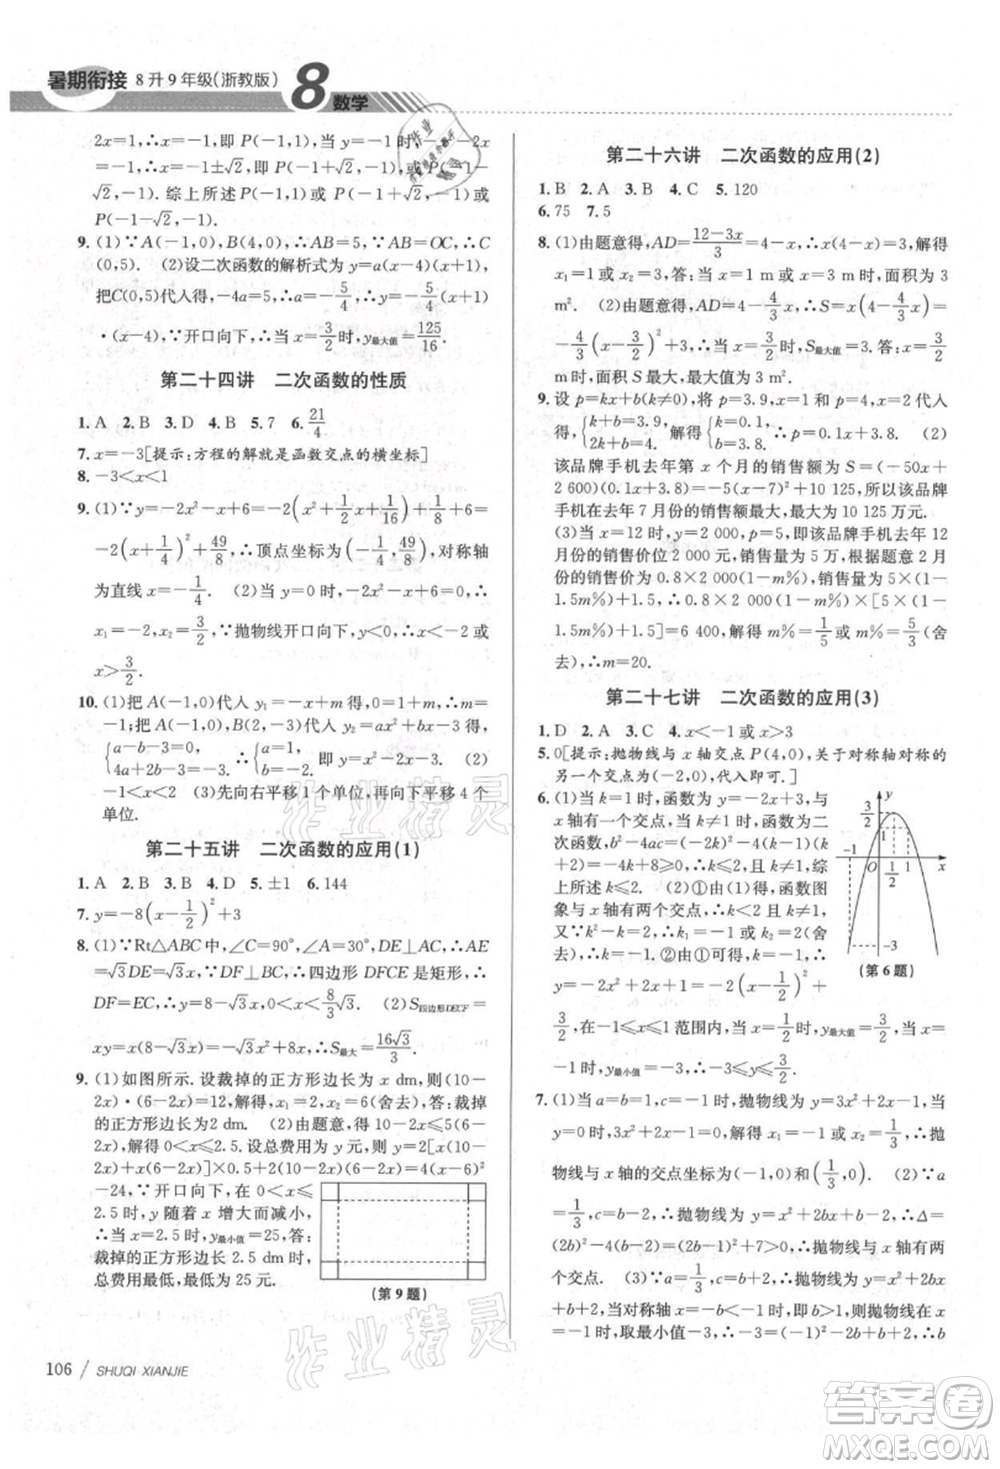 暑期衔接 8升9年级(浙教版) 8 数学
2x=1,∴x=-1,即 P(-1,1),当 y=-1 时,-x²-
-2x=-1,∴x=-1±√2,即 P(-1+√2,-1)或 P(-1-
√2,-1).综上所述 P(-1,1)或 P(-1+√2,-1)或
P(-1-√2,-1).
9.(1)∵A(-1,0),B(4,0),∴AB=5,∵AB=OC,∴C
(0,5). (2)设二次函数的解析式为 y=a(x-4)(x+1),
把C(0,5)代入得,-4a=5,∴a=-5/4,∴y=-5/4(x-4)
·(x+1),∵开口向下,∴当 x=3/2时,y最大值=125/16.
第二十四讲 二次函数的性质
1.A 2.B 3.D 4.B 5.7 6.21/4
7.x=-3[提示:方程的解就是函数交点的横坐标]
8.-3<x<1
9.(1)∵y=-2x²-x+6=-2(x²+1/2x+1/16)+1/8+6=
-2(x+1/4)²+49/8,∴顶点坐标为(-1/4,49/8),对称轴
为直线 x=-1/4. (2)令 y=0,即-2x²-x+6=0,∴
x₁=-2,x₂=3/2,∵抛物线开口向下,y<0,∴x<-2 或
x>3/2.
10.(1)把 A(-1,0)代入 y₁=-x+m 得 1+m=0,∴m=
-1;把 A(-1,0),B(2,-3)代入 y₂=ax²+bx-3 得
{a-b=3, 4a+2b=0, ∴{a=1, b=-2, ∴y₂=x²-2x-3. (2)
-1<x<2 (3)先向右平移1个单位,再向下平移4个
单位.
第二十五讲 二次函数的应用(1)
1.A 2.B 3.B 4.D 5.±1 6.144
7.y=-8(x-1/2)²+3
8.(1)∵Rt△ABC 中,∠C=90°,∠A=30°,∴AE
=√3DE=√3x,∵DF⊥BC,∴四边形 DFCE 是矩形,∴
DF=EC,∴y=8-√3x,0<x<8/3√3. (2)S四边形DECF=
xy=x(8-√3x)=-√3x²+8x,∴S最大=16√3/3.
9.(1)如图所示.设裁掉的正方形边长为 x dm,则(10-
2x)·(6-2x)=12,解得 x₁=2,x₂=6(舍去),∴裁掉的
正方形边长为2 dm. (2)由题意,得 10-2x≤5(6-
2x),解得 0<x≤2.5,设总费用为 y 元,则 y=2[x(10-
2x)×2+x(6-2x)×2]×0.5+2(10-2x)(6-2x)=4(x-6)²
-24,∵开口向上,∴在 0<x≤
2.5 时,y 随 x 增大而减小,
∴当 x=2.5 时,y最小值=25,答:
裁掉的正方形边长 2.5 dm 时,
总费用最低,最低为 25 元.
(第9题)
106 SHUQI XIANJIE
第二十六讲 二次函数的应用(2)
1.B 2.A 3.B 4.C 5.120
6.75 7.5
8.(1)由题意得,AD=12-3x/3,∴x·12-3x/3=3,解得
x₁=1 或 x₂=3,答:当 x=1 m 或 3 m 时,面积为 3
m². (2)由题意得,AD=4-4/3x,∴S=x(4-4/3x)=
-4/3(x-3/2)²+3,∴当 x=3/2时,S最大值=3.答:当x=3/2时,
面积 S 最大,最大面积为 3 m².
9.设 p=kx+b(k≠0),将 x=1,p=3.9,x=2,p=4.0 代入
得{k+b=3.9, 2k+b=4, 解得{k=0.1, b=3.8, ∴p=0.1x+3.8. (2)
该品牌手机去年第 x 个月的销售额为 S=(-50x+
2 600)(0.1x+3.8)=-5(x-7)²+10 125,所以该品牌
手机在去年 7 月份的销售额最大,最大为 10 125 万元.
(3)当 x=12 时,y=2 000,p=5,即该品牌手机去年
12 月份的销售价位 2 000 元,销售量为 5 万,根据题意 2
月份的销售价位为 0.8×2 000(1-m%),销售量为 5×(1-
1.5m%),∴0.8×2 000(1-m%)×[5×(1-
1.5m%)+1.5]=6 400,解得 m%=1/5或 m%=5/3(舍
去),∴m=20.
第二十七讲 二次函数的应用(3)
1.D 2.A 3.C 4.x<-1 或 x>3
5.0[提示:抛物线与 x 轴交点 P(4,0),关于对称轴对称的
另一个交点为(-2,0),代入即可.]
6.(1)当 k=1 时,函数为 y=-2x+3,与
x 轴有一个交点,当 k≠1 时,图象与 x
轴有交点时,b²-4ac=(-2k)²-4(k-1)(k+2)
=-4k+8≥0,解得 k≤2,即 k≤2 且 k≠1.
综上所述,k 的取值范围
是 k≤2. (2)由(1)得,函数图
象与 x 轴有两个交点,k<2 且 k≠1,
又∵k²-k=2,∴k=-1 或 k=2(舍
去),∴所求 k=-1. ②由①得 k=-1,
∴y=-2x²+2x+1=-2(x-1/2)²+
3/2,∴在-1≤x≤1 范围内,当 x=1/2时,y最大值=3/2,当 x
=-1 时,y最小值=-3.
(第6题)
7.(1)当 a=b=1,c=-1 时,抛物线为 y=3x²+2x-1,令
3x²+2x-1=0,解得 x₁=-1,x₂=1/3,∴抛
物线与 x 轴的交点坐标为(-1,0)和(1/3,0). (2)∵a=
1/3,c=b-1,∴抛物线为 y=x²+2bx+b-1,∴Δ=
(2b)²-4(b-1)=(2b-1)²+3>0,∴抛物线与 x 轴有
两个交点. (3)∵a=1/3,c=b+2,∴抛物线为 y=x²+
2bx+b+2,当对称轴 x=-b<-2,即 b>2,则抛物线在 x
=-2 时,取最小值-3=(-2)²+2×(-2)b+b+2,解